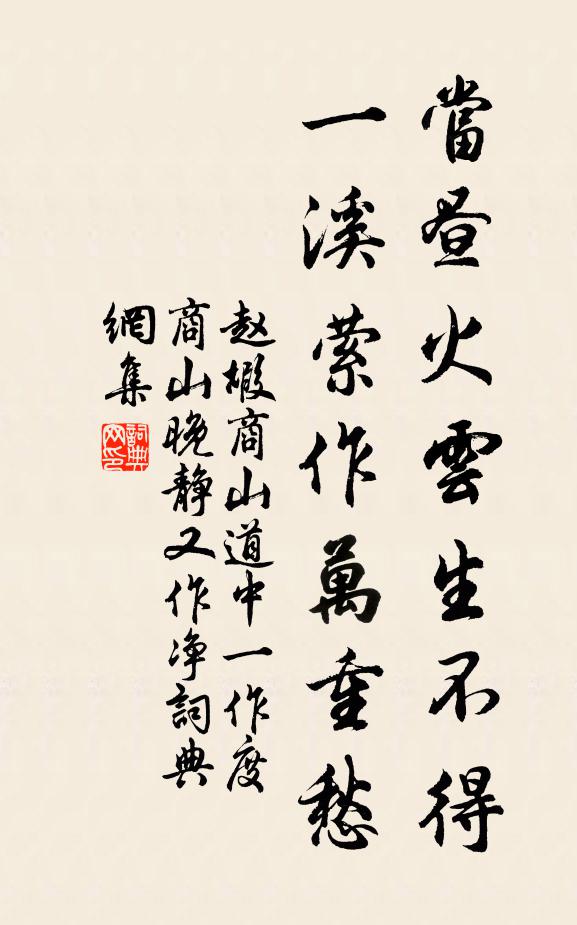 當晝火雲生不得
一溪縈作萬重愁
趙嘏商山道中一作度
商山晚靜又作淨詞典
網集
詞典
网印